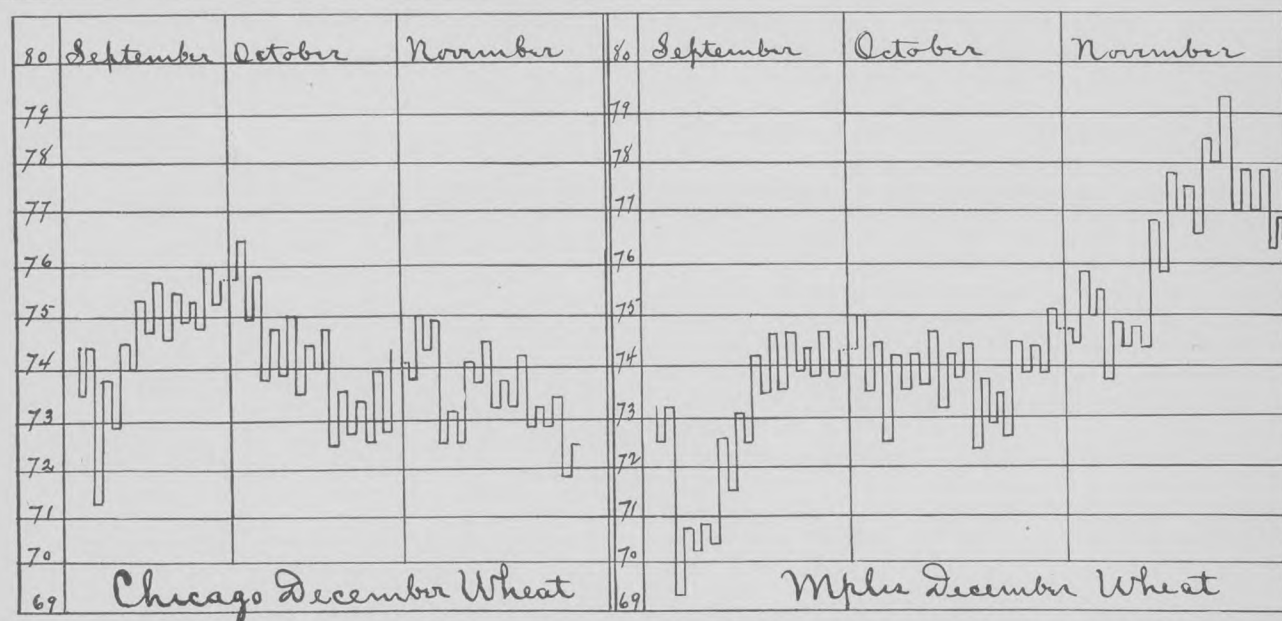 80 September October November
79
78
77
76
75
74
73
72
71
70
69 Chicago December Wheat
80 September October November
79
78
77
76
75
74
73
72
71
70
69 Mpls December Wheat